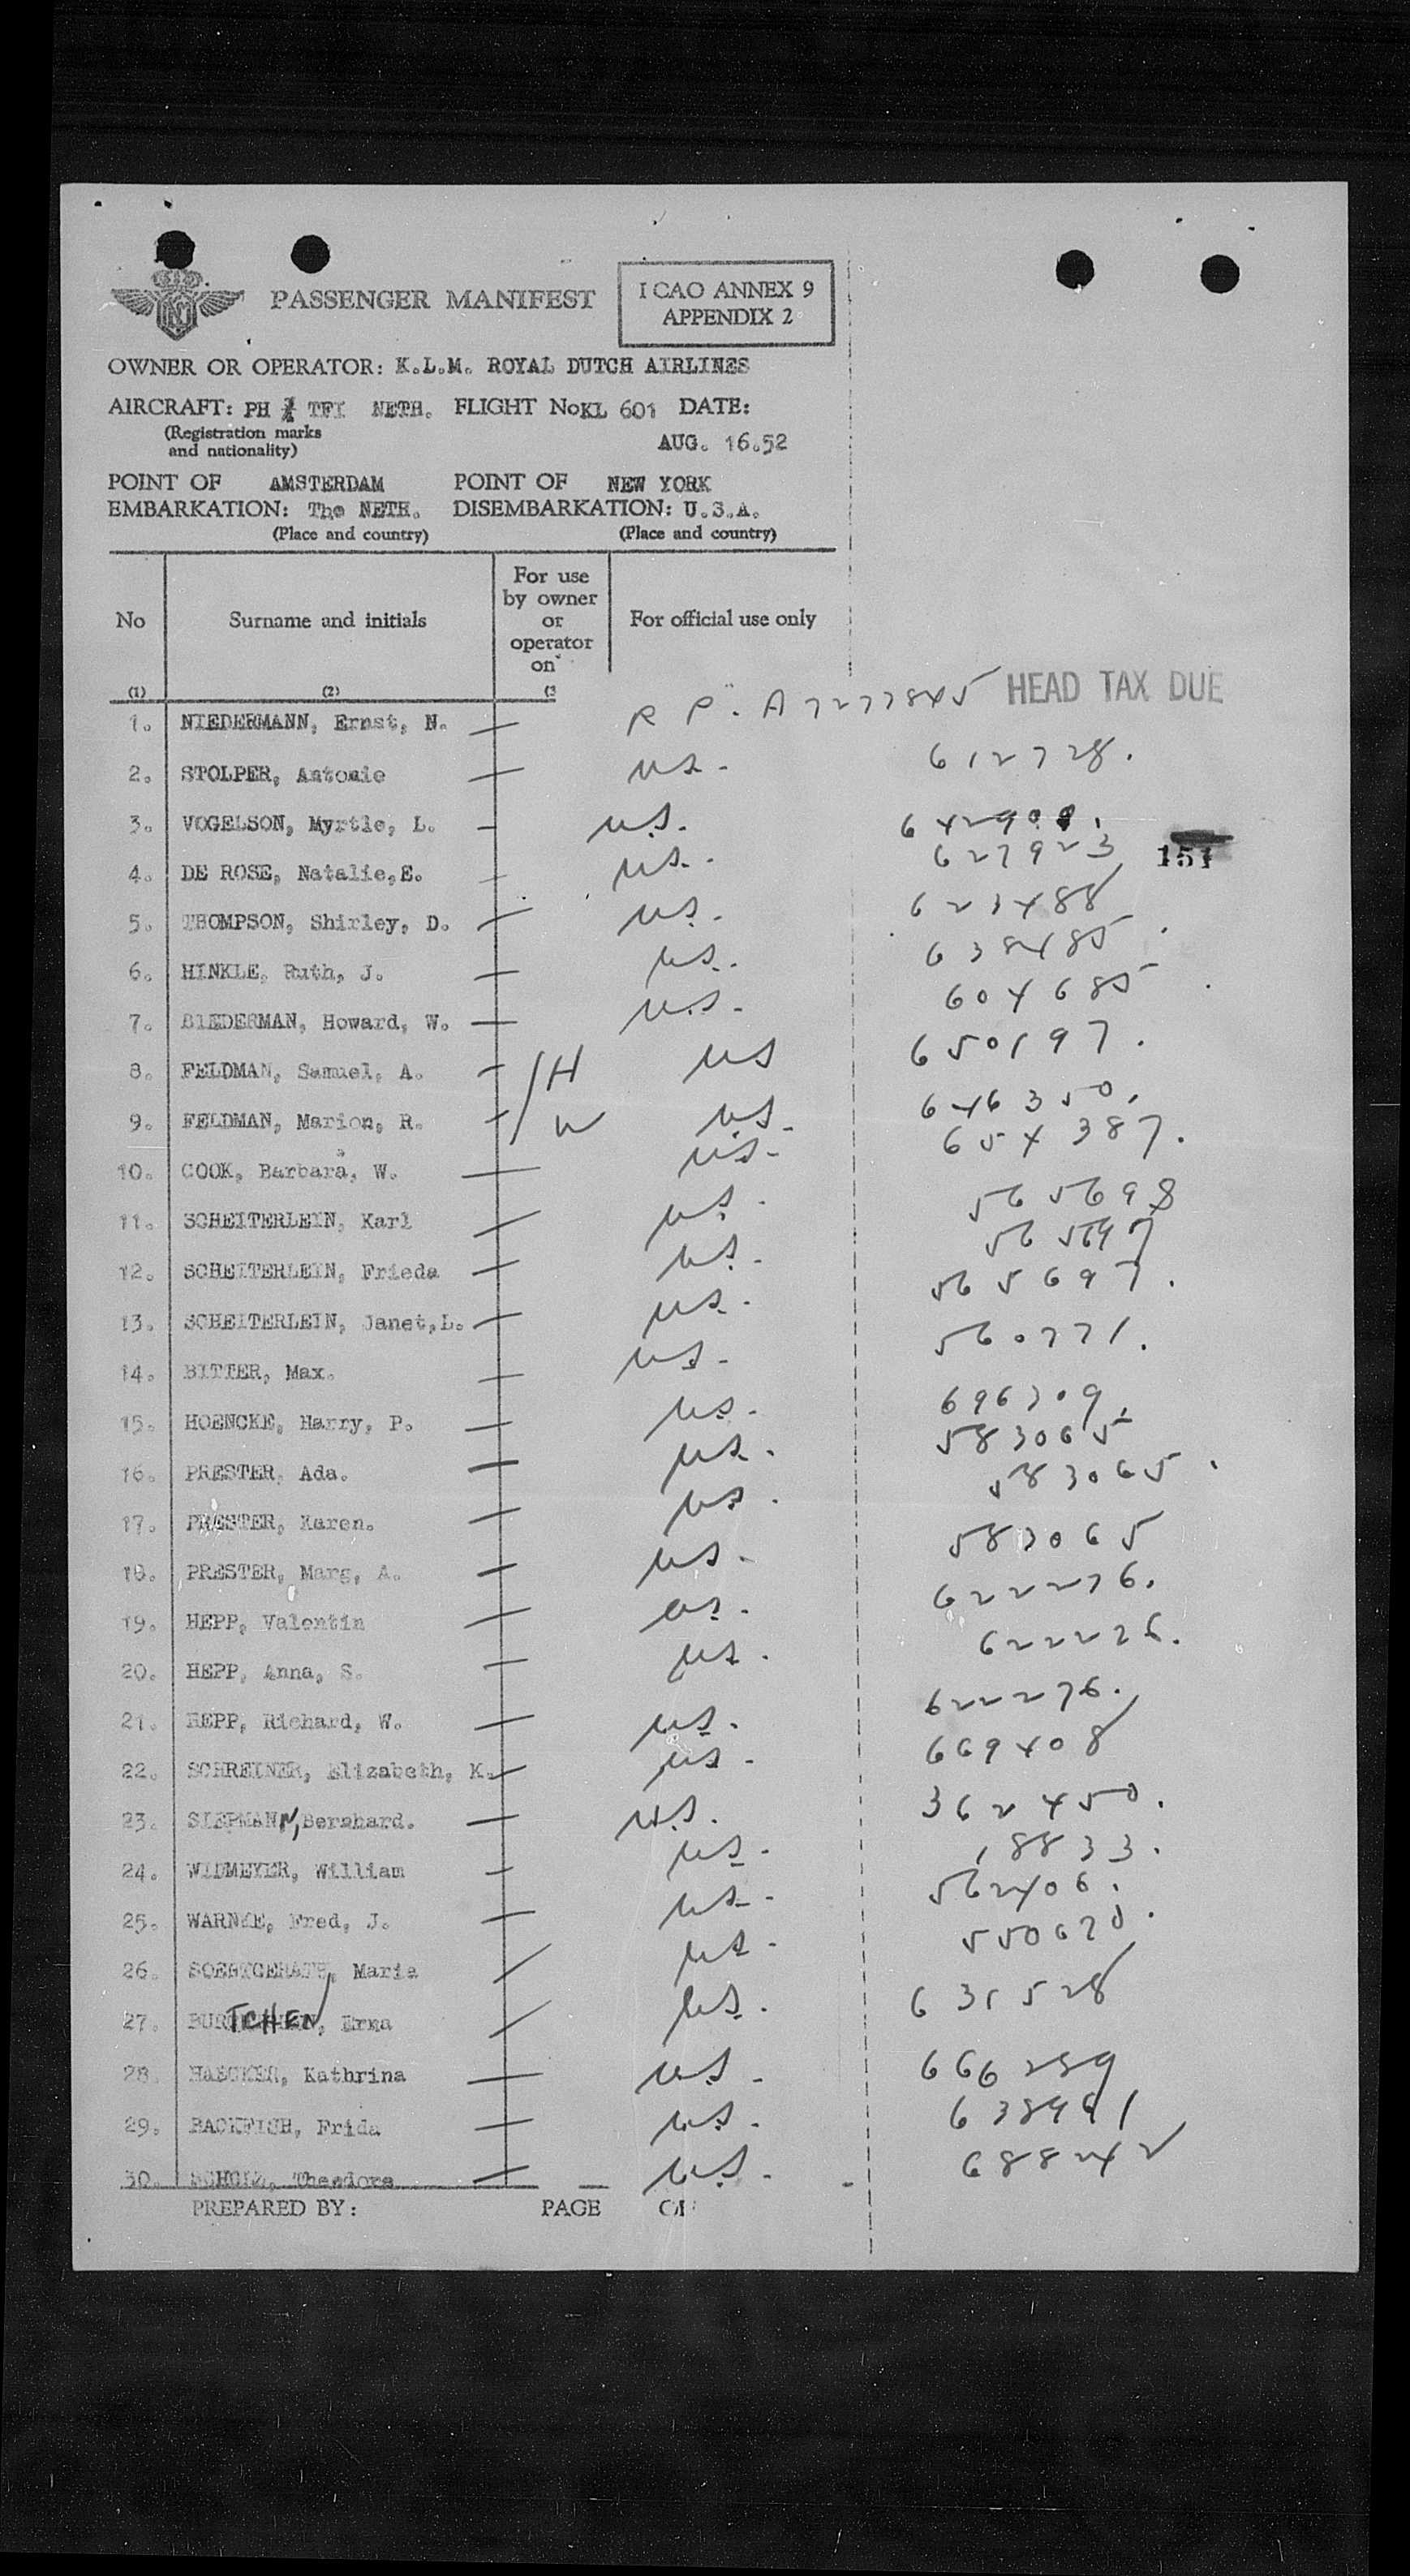 PASSENGER MANIFEST
I CAO ANNEX 9
APPENDIX 2
OWNER OR OPERATOR: K.L.M. ROYAL DUTCH AIRLINES
AIRCRAFT: PH TFI NETH. FLIGHT No KL 601 DATE:
(Registration marks
and nationality)
AUG. 16.52
POINT OF AMSTERDAM POINT OF NEW YORK
EMBARKATION: The NETH. DISEMBARKATION: U.S.A.
(Place and country) (Place and country)
No Surname and initials For use by owner or operator on For official use only
(1) (2) (3
HEAD TAX DUE
1. NIEDERMANN, Ernst, N. — R P. A7277845
2. STOLPER, Antonie — US. 612728.
3. VOGELSON, Myrtle, L. — U.S.
4. DE ROSE, Natalie,E. — US. 627923 151
5. THOMPSON, Shirley, D. — US. 623488
6. HINKLE, Ruth, J. — US. 638485
7. BIEDERMAN, Howard, W. — U.S. 604685
8. FELDMAN, Samuel, A. — H US 650197.
9. FELDMAN, Marion, R. — W US. 646350.
10. COOK, Barbara, W. — US. 654387.
11. SCHEITERLEIN, Karl — US. 565698
12. SCHEITERLEIN, Frieda — US. 565697
13. SCHEITERLEIN, Janet,L. — US. 565697.
14. BITTER, Max. — US. 560771.
15. HOENCKE, Harry, P. — US. 696309.
16. PRESTER, Ada. — US. 583065
17. PRESTER, Karen. — US. 583065.
18. PRESTER, Marg, A. — US. 583065
19. HEPP, Valentin — US. 622276.
20. HEPP, Anna, S. — US. 622276.
21. HEPP, Richard, W. — US. 622276.
22. SCHREINER, Elizabeth, K. — US. 669408
23. SIEPMANN, Bernhard. — U.S. 362450.
24. WIDMEYER, William — US. 18833.
25. WARNKE, Fred, J. — US. 562406.
26. Maria — US. 550670.
27. TCHEN, Erna — US. 631528
28. HAECKER, Kathrina — US. 666289
29. BACKFISH, Frida — US.
30. SCHOLZ, Theodore — US. 688242
PREPARED BY: PAGE OF